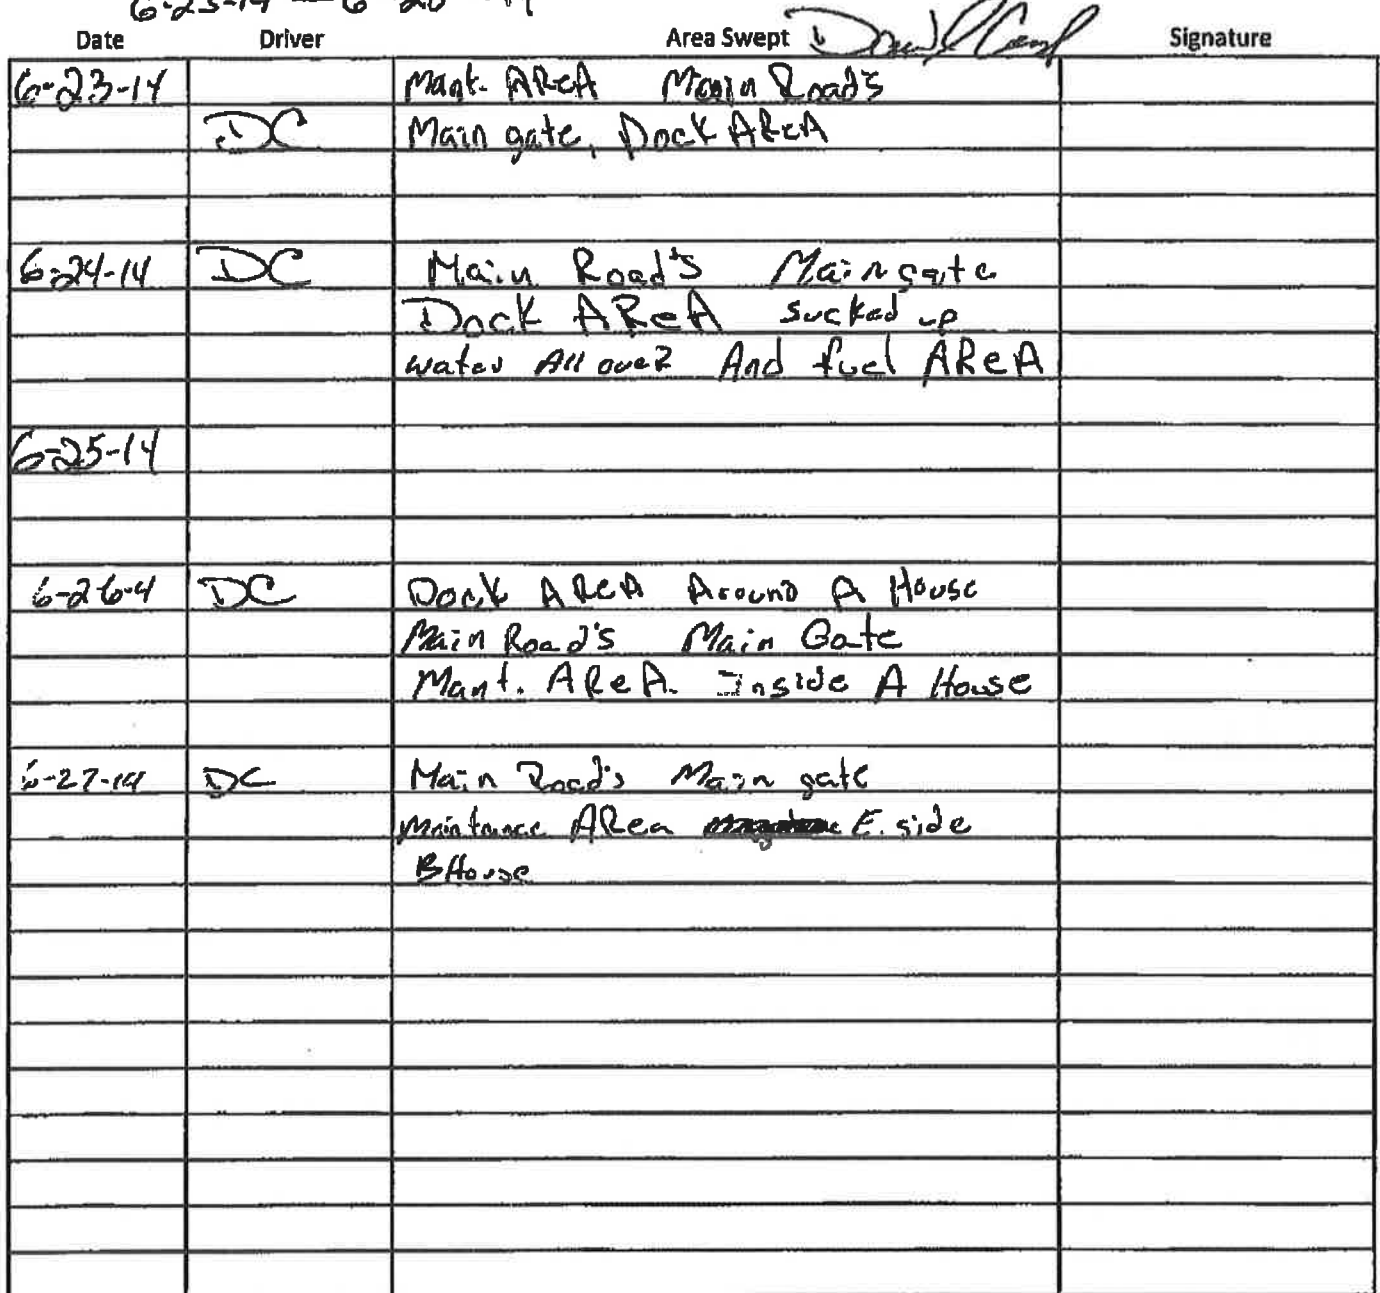 6-23-14 — 6-28-14
Date Driver Area Swept Signature
6-23-14 Mant. AReA Main Road's
DC Main gate, Dock AReA
6-24-14 DC Main Road's Main gate
Dock AReA sucked up
water All oveR And fuel AReA
6-25-14
6-26-4 DC Dock AReA Around A House
Main Road's Main Gate
Mant. AReA. Inside A House
6-27-14 DC Main Road's Main gate
Maintance ARea E. side
B House